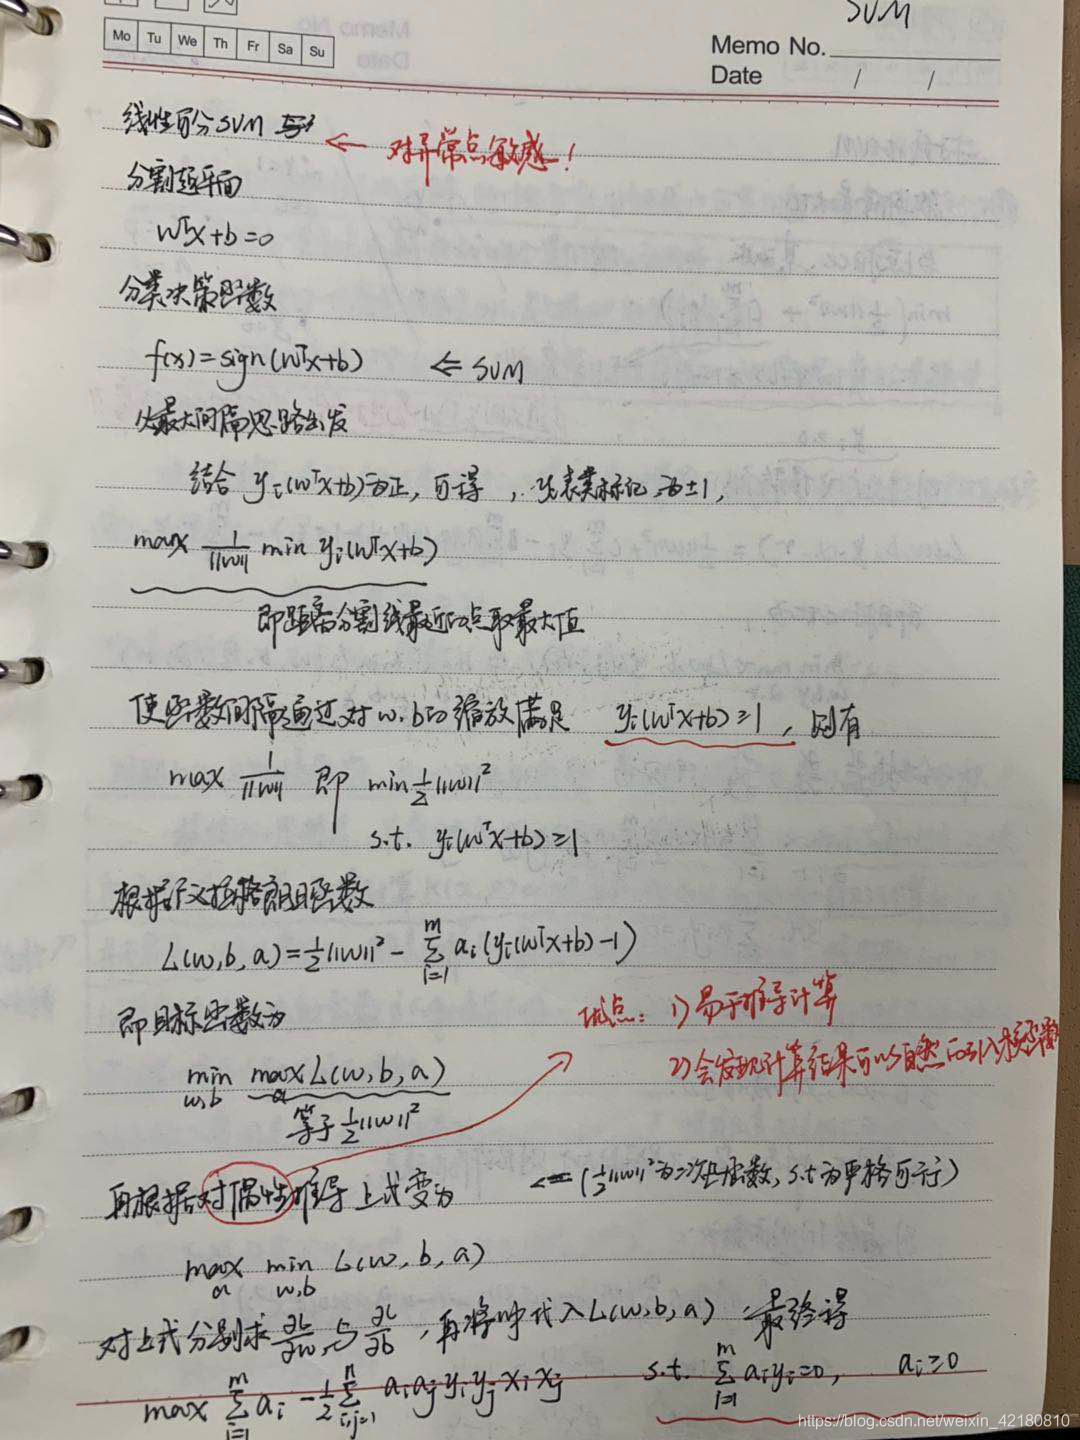 SVM
Mo Tu We Th Fr Sa Su
Memo No.
Date / /
线性可分SVM
← 对异常点敏感!
分割超平面
wᵀx+b=0
分类决策函数
f(x)=sign(wᵀx+b) ⇐ SVM
从最大间隔思路出发
结合 yᵢ(wᵀx+b)为正,可得,yᵢ表类标记,为±1,
max 1/||w|| min yᵢ(wᵀx+b)
即距离分割线最近的点取最大值
使函数间隔通过对w.b的缩放满足 yᵢ(wᵀx+b)≥1,则有
max 1/||w|| 即 min ½||w||²
s.t. yᵢ(wᵀx+b)≥1
根据广义拉格朗日函数
L(w,b,a)=½||w||² - Σᵢ₌₁ᵐ aᵢ(yᵢ(wᵀx+b)-1)
即目标函数为
优点: 1)易于推导计算
2)会发现计算结果可以自然的引入核函数
min_{w,b} max_a L(w,b,a)
等于½||w||²
再根据对偶性推导上式变为 ⇐ (½||w||²为二次凸函数,s.t为严格可行)
max_a min_{w,b} L(w,b,a)
对上式分别求 ∂L/∂w 与 ∂L/∂b,再将 代入L(w,b,a),最终得
max Σᵢ₌₁ᵐ aᵢ - ½ Σᵢ,ⱼ₌₁ⁿ aᵢaⱼyᵢyⱼxᵢxⱼ s.t. Σᵢ₌₁ᵐ aᵢyᵢ=0, aᵢ≥0
https://blog.csdn.net/weixin_42180810